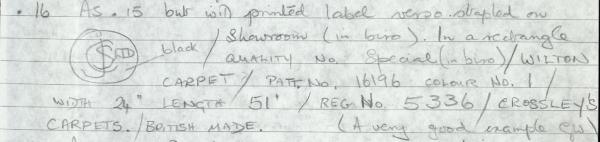 .16 As .15 but with printed label verso stapled on
black / Showroom (in biro). In a rectangle
QUALITY No. Special (in biro) / WILTON
CARPET / PATT. No. 16196 COLOUR No. 1 /
WIDTH 24" LENGTH 51" / REG. No 5336 / CROSSLEY'S
CARPETS. / BRITISH MADE. (A very good example